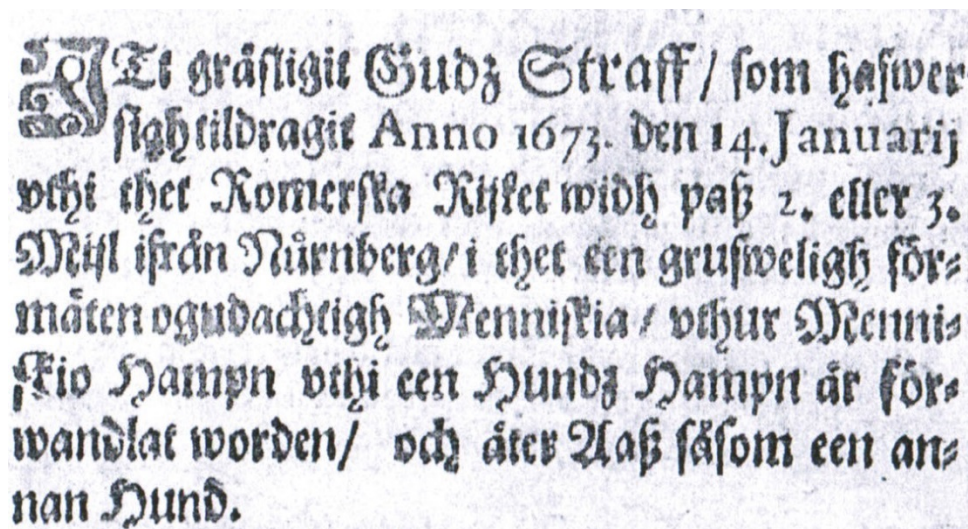 ITt gräsligit Gudz Straff / som hafwer
sigh tildragit Anno 1673. den 14. Januarij
vthi thet Romerska Rijket widh paß 2. eller 3.
Mijl ifrån Nürnberg / i thet een grufweligh för=
mäten ogudachtigh Menniskia / vthur Menni=
skio Hampn vthi een Hundz Hampn är för=
wandlat worden / och äter Aaß såsom een an=
nan Hund.